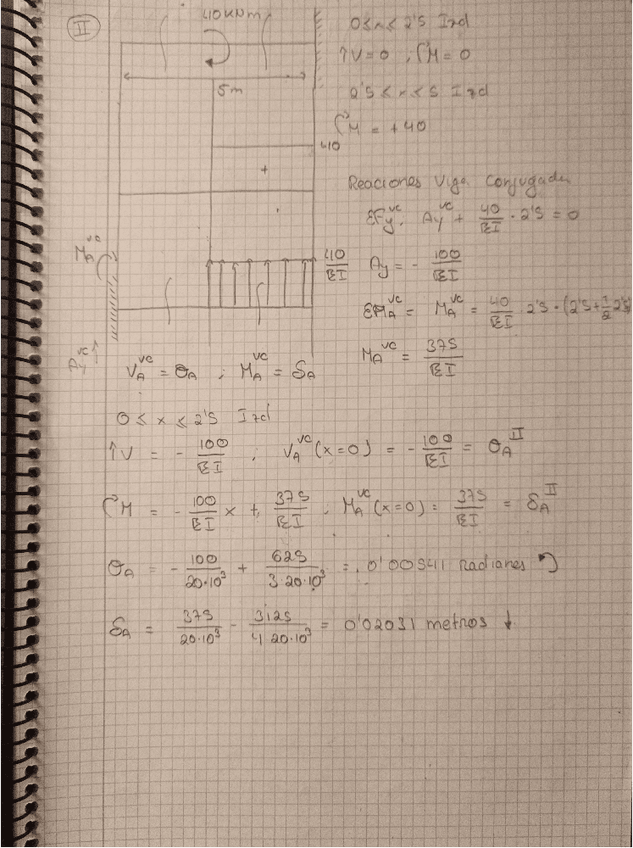 II
40 KNm
5m
0 ≤ x ≤ 2'5 Izd
↑V = 0 ; M = 0
2'5 ≤ x ≤ 5 Izd
M = + 40
40
+
Reacciones Viga Conjugada
ΣFy^vc. Ay^vc + 40/EI · 2'5 = 0
Ay = - 100/EI
40/EI
M_A^vc
ΣM_A^vc = M_A^vc = 40/EI 2'5 · (2'5 + 1/2 2'5)
M_A^vc = 375/EI
Ay^vc ↑
V_A^vc = θ_A ; M_A^vc = δ_A
0 ≤ x ≤ 2'5 Izd
↑V = - 100/EI ; V_A^vc (x=0) = - 100/EI = θ_A^II
M = - 100/EI x + 375/EI ; M_A^vc (x=0) = 375/EI = δ_A^II
θ_A = - 100/20·10³ + 625/3·20·10³ = 0'00541 radianes
δ_A = 375/20·10³ - 3125/4·20·10³ = 0'02031 metros ↓